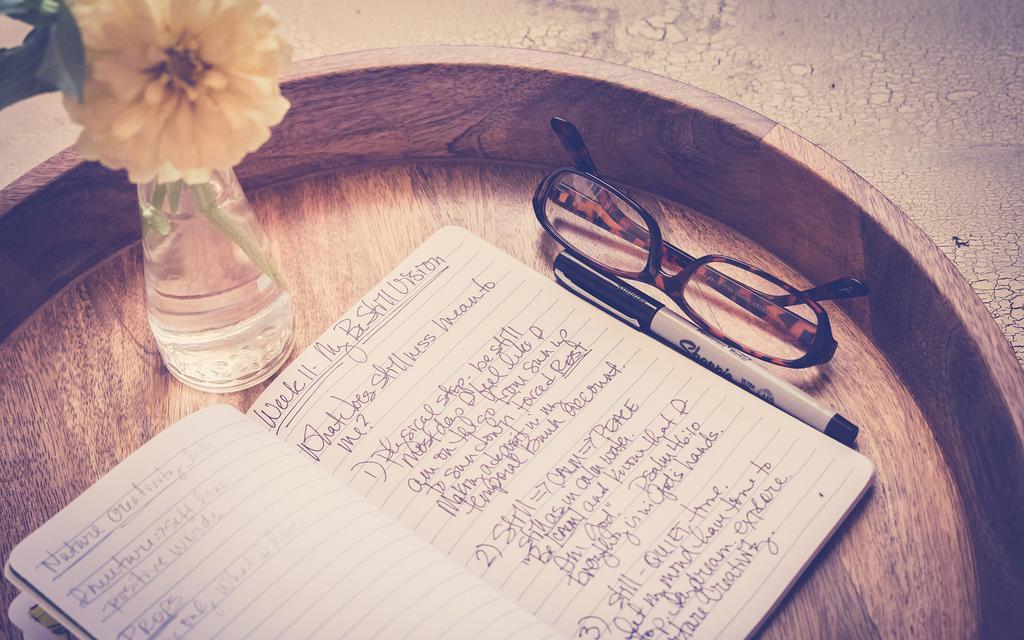 Nurture Creativity like
I nurture => self love
positive words.
PROPS
Week 11 - My Be Still Vision
What does stillness mean to
me?
1) Physical - stop, be still
most days I feel like I
am on the go from sun up
to sun down. Forced REST
Mom adding in my
temporal Bank Account.
2) Still => CALM => PEACE
still as in calm water.
Be calm and know that I
Am God. Psalm 46:10
Everything is in God's hands.
3) Still - QUIET time.
Let my mind have time to
daydream, explore.
Have Creativity.
Sharpie